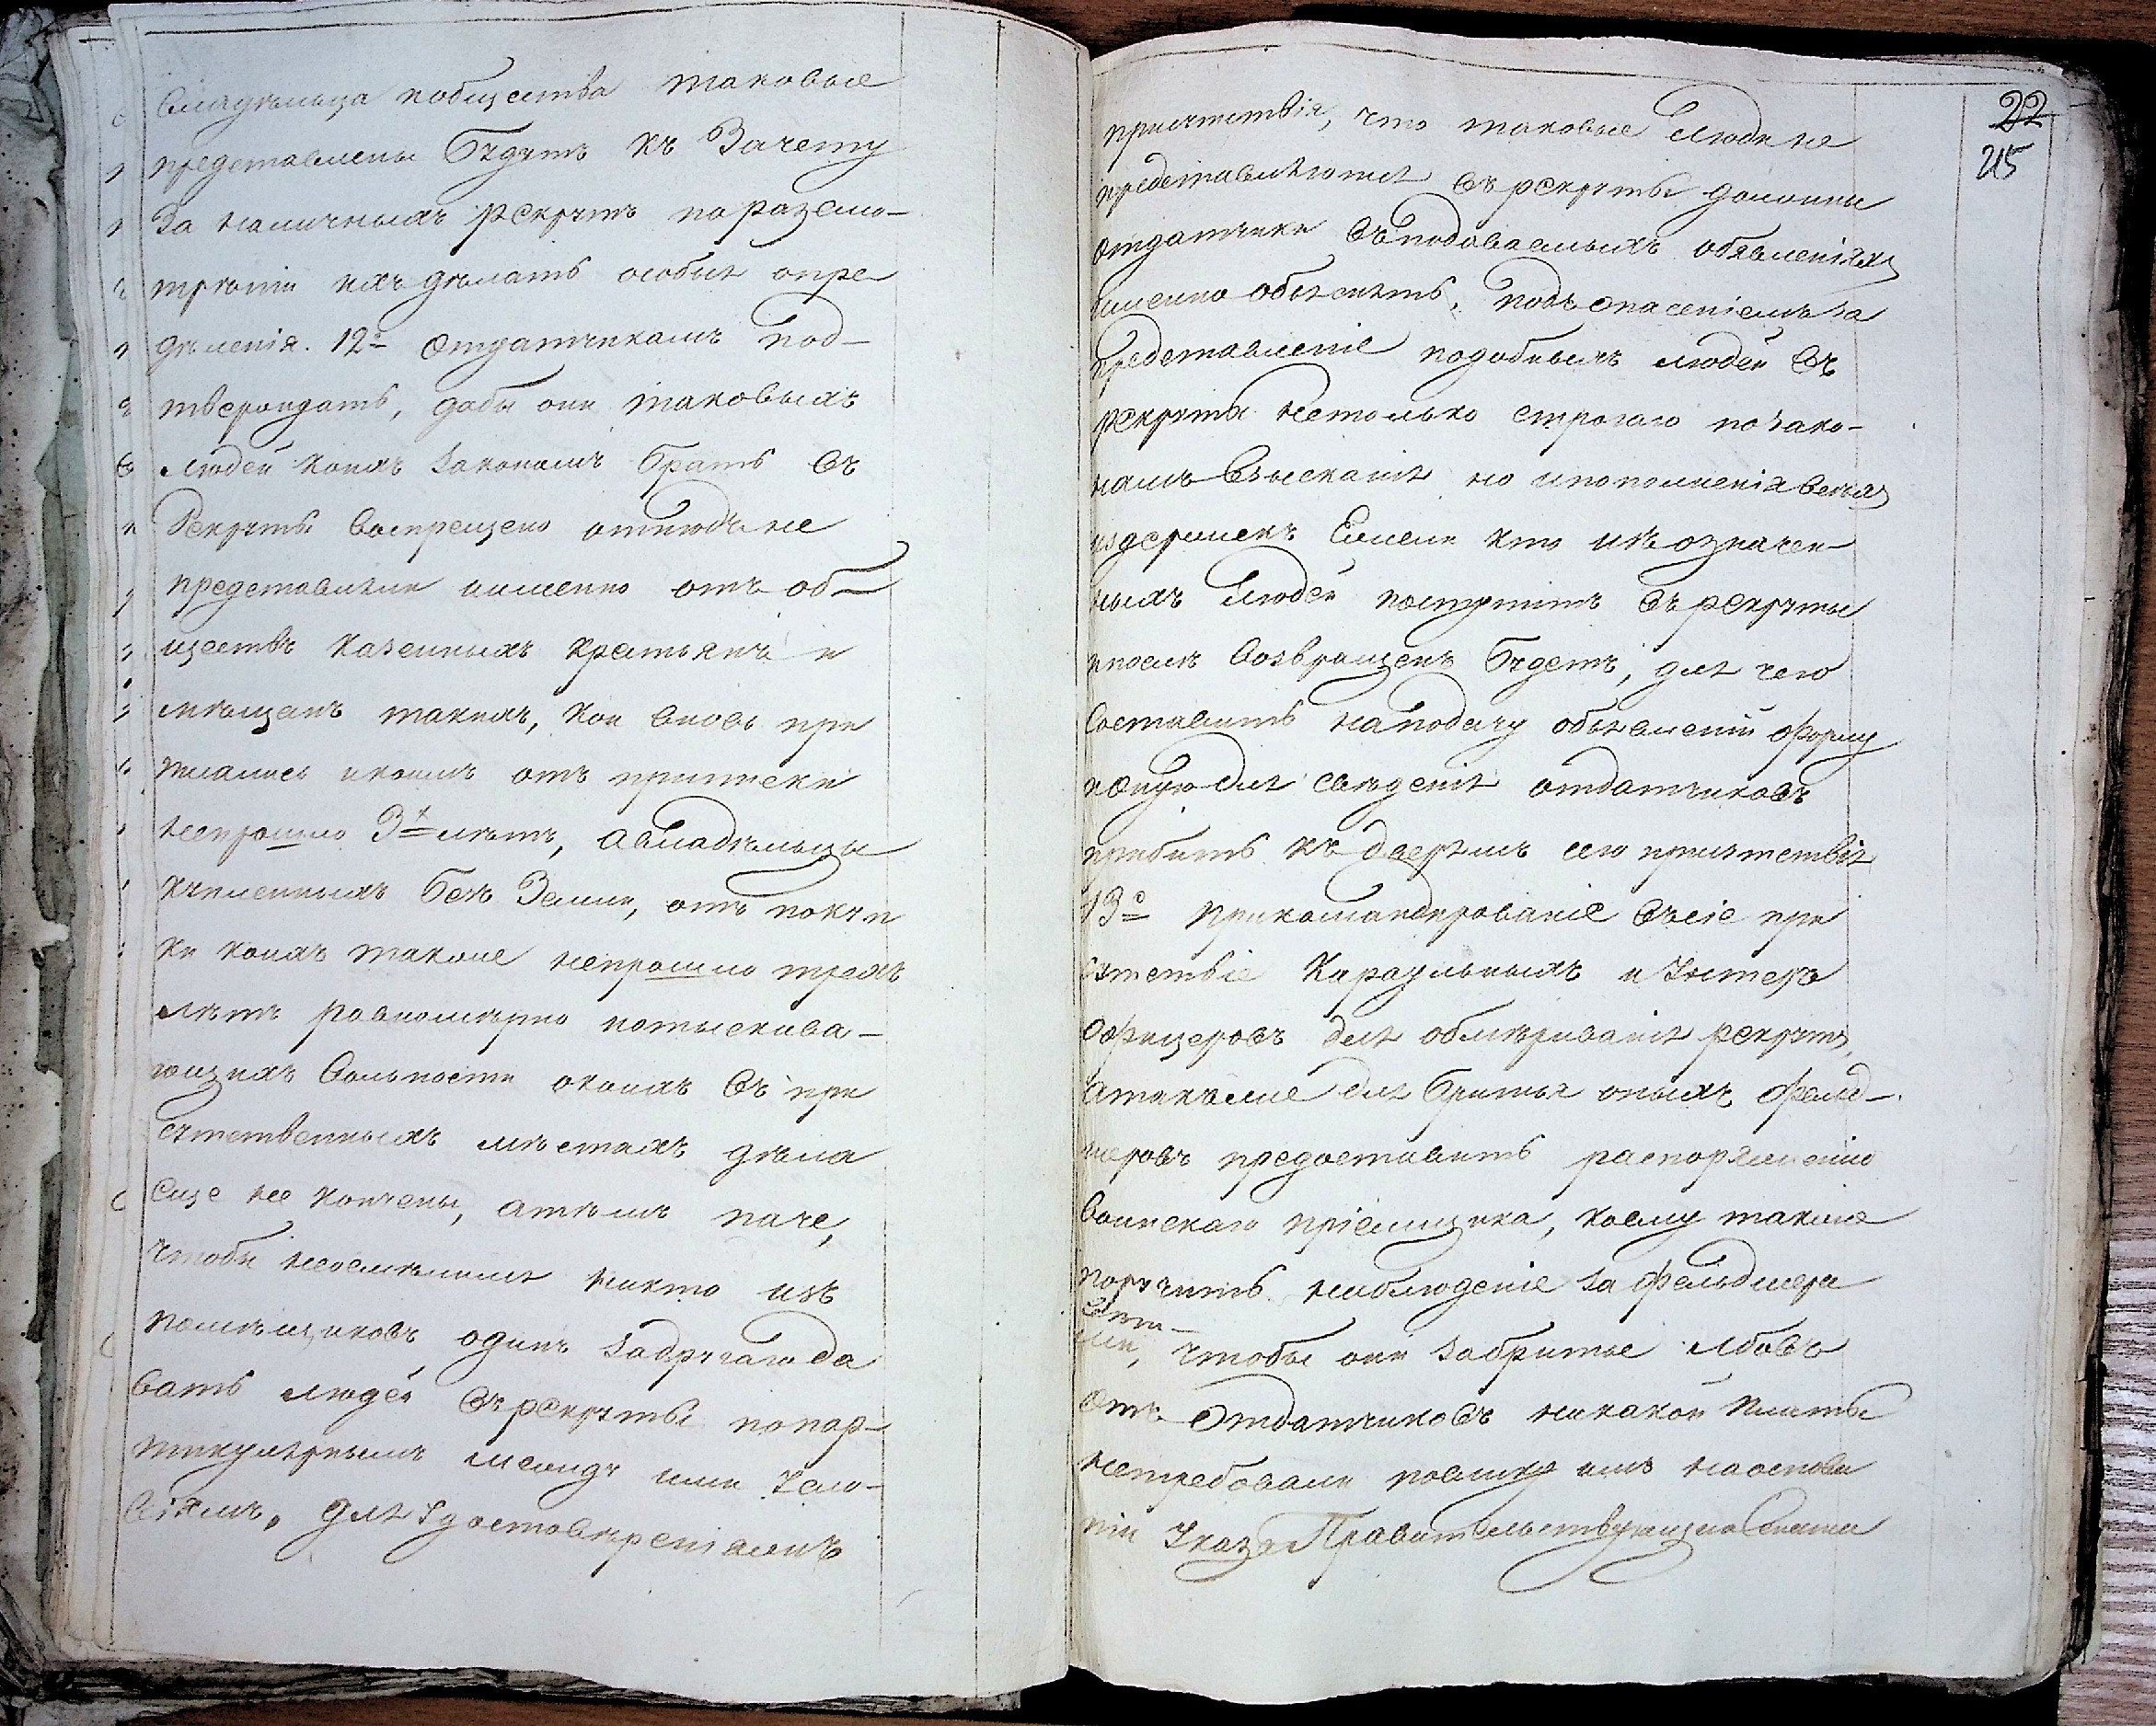 владѣльца иобщества таковые
представлены бѣдутъ къ Зачету
За наличныхъ рекрутъ поразсмо-
трѣніи ихъ дѣлать особыя опре
дѣленія. 12е Отдатчикамъ под-
тверждать, дабы они таковыхъ
людей коихъ закономъ брать въ
Рекруты воспрещено отнюдь не
представляли аименно отъ об-
ществъ казенныхъ крестьянъ и
мѣщанъ такихъ, кои вновь при
писались икоимъ отъ приписки
непрошло 3х лѣтъ, авладѣльцы
купленныхъ безъ Земли, отъ покуп
ки коихъ также непрошло трехъ
лѣтъ равномѣрно иотыскива-
ющихъ вольности окоихъ въ при
сутственныхъ мѣстахъ дѣла
еще не кончены, атѣмъ паче,
чтобы неосмѣлился никто изъ
помѣщиковъ одинъ задругаго да
вать людей въ рекруты попар-
тикулярнымъ между ими усло-
віямъ, для удостовѣреніяжъ
присутствія, что таковые люди не
представляются въ рекруты должны
отдатчики въ подаваемыхъ объявленіяхъ
именно объяснять, подъ опасеніемъ за
представленіе подобныхъ людей въ
рекруты нетолько строгаго позако-
намъ взысканія но ипополненія всехъ
издержекъ Ежели кто изъ означен-
ныхъ людей поступитъ въ рекруты
ипослѣ возвращенъ будетъ, для чего
составить наподачу объявленій форму
икопую для свѣденія отдатчиковъ
прибить къ дверямъ сего присутствія
13е прикомандированіе въ сіе при
сутствіе Караульныхъ и Унтеръ
офицеровъ для обмѣриванія рекрутъ,
атакже для бритья оныхъ фельд-
шеровъ предоставить распоряженію
воинскаго пріемщика, коему также
поручить наблюденіе за фельдшера
ми, чтобы они забритье лбовъ
отъ Отдатчиковъ никакой платы
нетребовали поелику имъ наоснова
ніи Указа Правительствующаго Сената
22
215